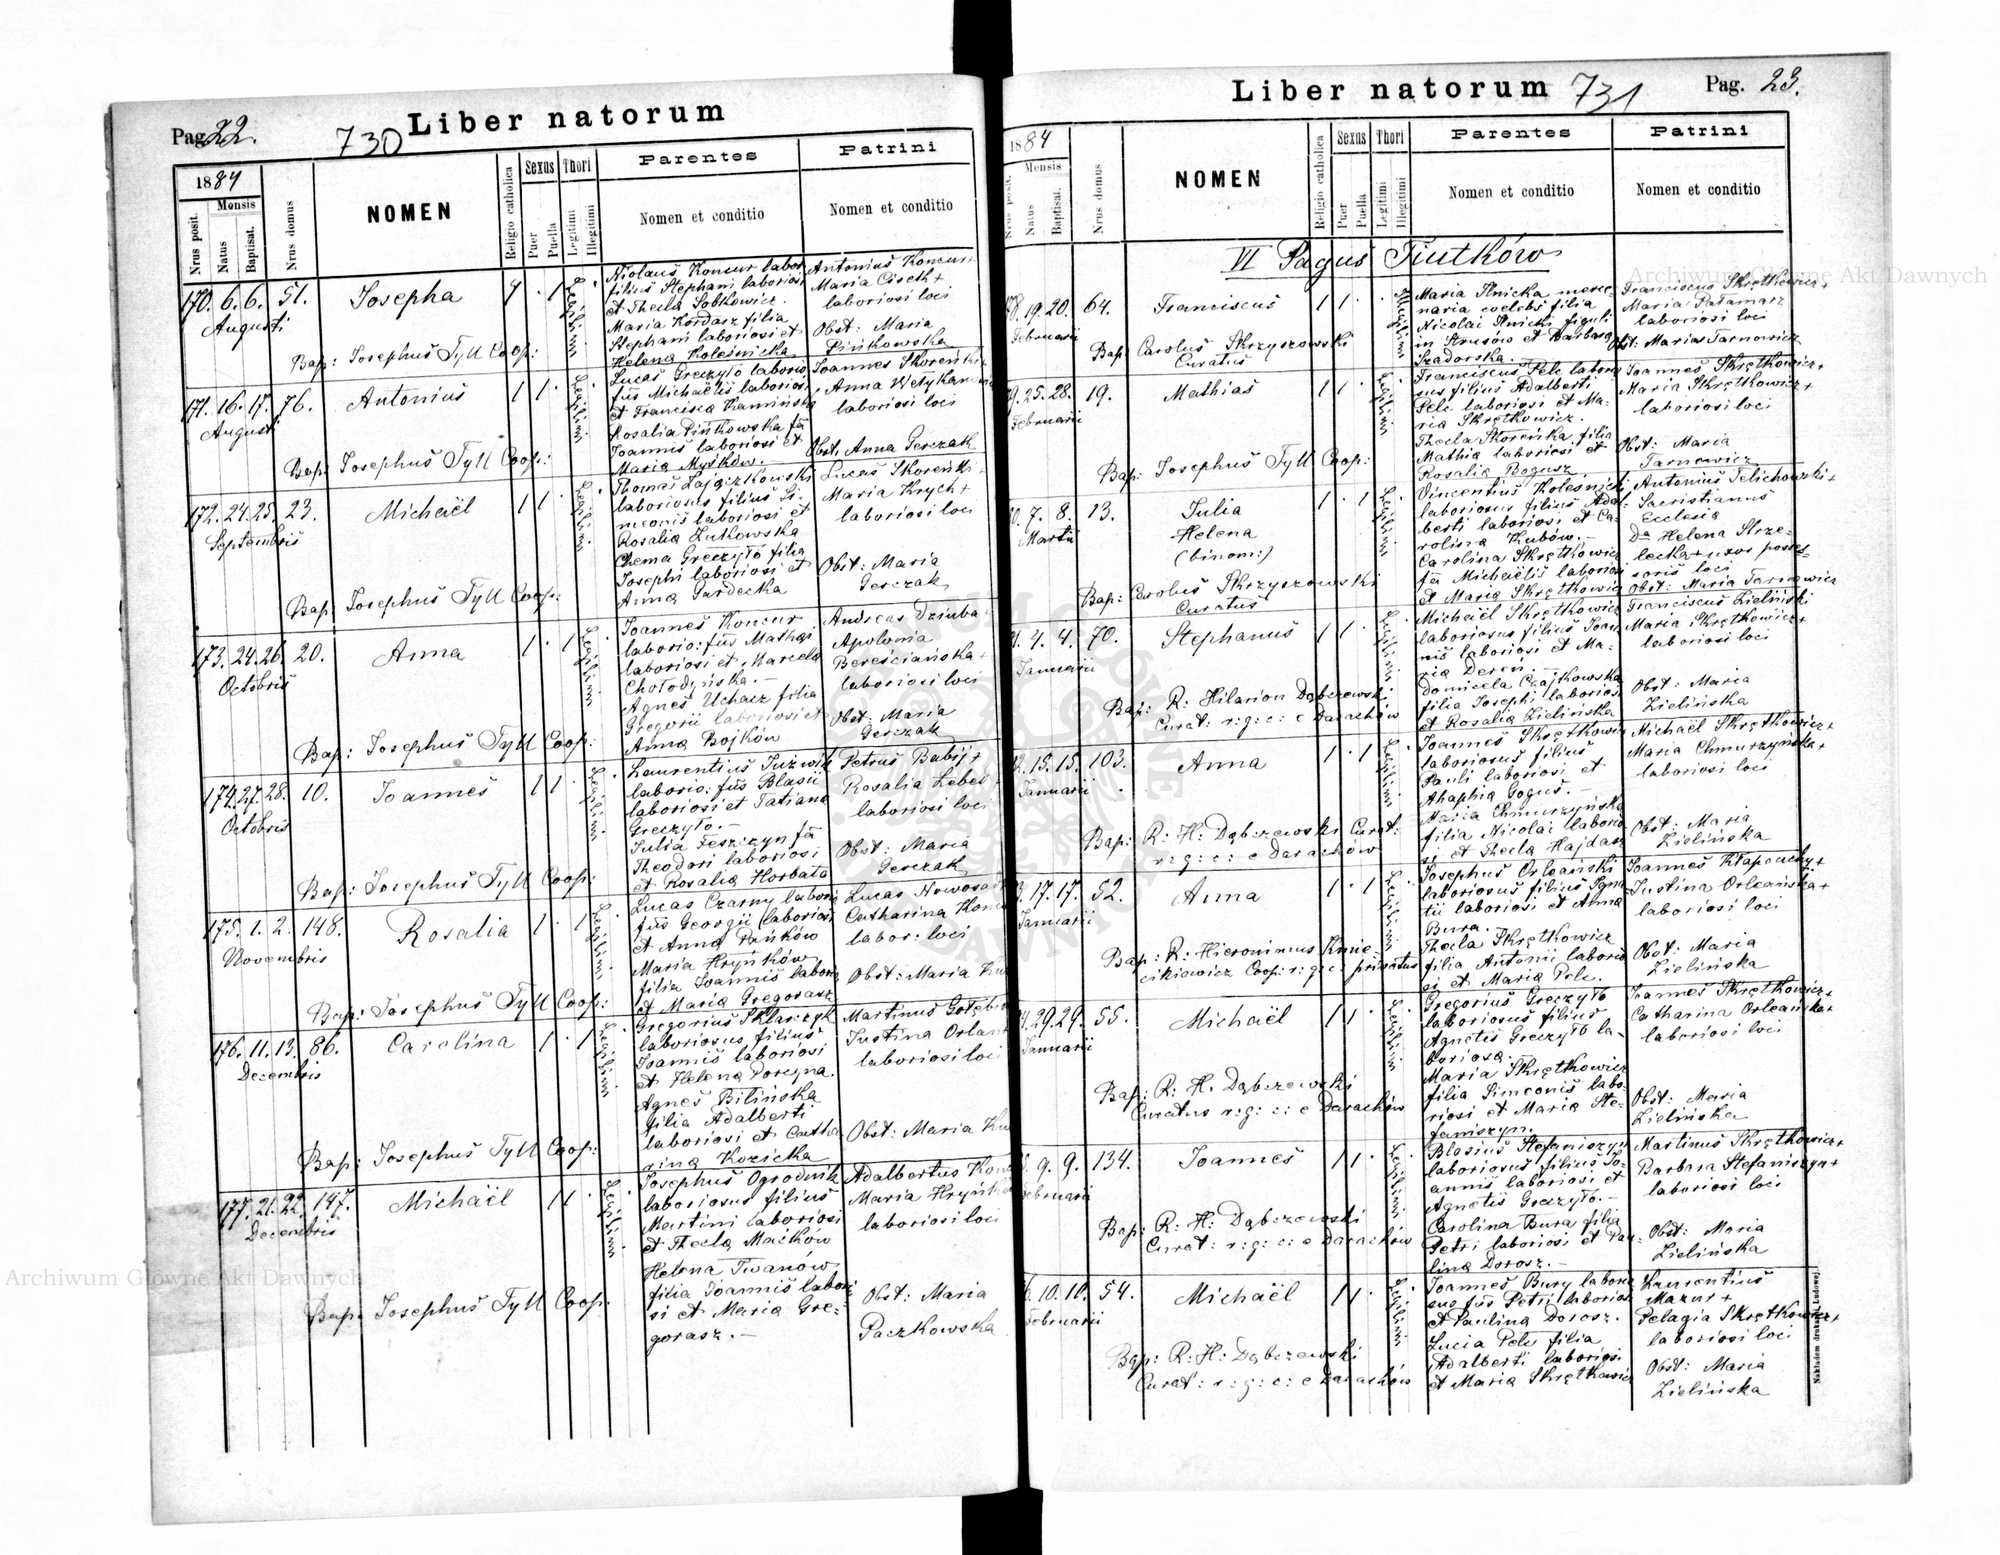 Pag. 22.
730
Liber natorum
1884
Mensis
Nrus posit.
Natus
Baptisat.
Nrus domus
NOMEN
Religio catholica
Sexus
Puer
Puella
Thori
Legitimi
Illegitimi
Parentes
Nomen et conditio
Patrini
Nomen et conditio
170. 6. 6. 51.
Augusti
Josepha
1 . 1
Legitimi
Koncur labor.
filius Stephani laboriosi
et Thecla Sobkowicz.
Maria Kordasz filia
Stephani laboriosi et
Helena Kolesnicka
Antonius Koncur +
Maria Ciseck +
laboriosi loci
Obst: Maria
Pińkowska
Bap: Josephus Tyll Coop:
171. 16. 17. 76.
Augusti
Antonius
1 1 .
Legitimi
Lucas Greczyło laborio
fus Michaëlis laboriosi
et Francisca Kamińska
Rosalia Pińkowska fa
Joannis laboriosi et
Maria Myśków.
Joannes Skoreński
Anna Wełykan
laboriosi loci
Obst. Anna Gerczak
Bap: Josephus Tyll Coop:
172. 24. 25. 23.
Septembris
Michaël
1 1 .
Legitimi
Thomas Zajączkowski
laboriosus filius Si-
meonis laboriosi et
Rosalia Żukowska
Chema Greczyło filia
Josephi laboriosi et
Anna Gardecka
Lucas Skoreński
Maria Krych +
laboriosi loci
Obst: Maria
Gerczak
Bap: Josephus Tyll Coop:
173. 24. 26. 20.
Octobris
Anna
1 . 1
Legitimi
Joannes Koncur
laborio: fus Mathaei
laboriosi et Marcela
Chołodyńska. —
Agnes Uchacz filia
Gregorii laboriosi et
Anna Bojków
Andreas Dziuba
Apolonia
Bereściańska +
laboriosi loci
Obst: Maria
Gerczak
Bap: Josephus Tyll Coop:
174. 27. 28. 10.
Octobris
Joannes
1 1 .
Legitimi
Laurentius Juźwik
laborio: fus Blasii
laboriosi et Tatiana
Greczyło. —
Julia Feszczyn fa
Theodori laboriosi
et Rosalia Horbata
Petrus Babij +
Rosalia Lebed
laboriosi loci
Obst: Maria
Gerczak
Bap: Josephus Tyll Coop:
175. 1. 2. 148.
Novembris
Rosalia
1 . 1
Legitimi
Lucas Czarny laborio
fus Georgii laboriosi
et Anna Pańków
Maria Hryńków
filia Joannis laborio
et Maria Gregorasz
Lucas Nowosad
Catharina Konc
labor: loci
Obst: Maria
Bap: Josephus Tyll Coop:
176. 11. 13. 86.
Decembris
Carolina
1 . 1
Legitimi
Gregorius Sklarczyk
laboriosus filius
Joannis laboriosi
et Helena Poregna.
Agnes Bilińska
filia Adalberti
laboriosi et Catha
rina Kozicka
Martinus Gołębio
Justina Orlań
laboriosi loci
Obst: Maria
Bap: Josephus Tyll Coop:
177. 21. 22. 147.
Decembris
Michaël
1 1 .
Legitimi
Josephus Ogrodnik
laboriosus filius
Martini laboriosi
et Thecla Maćków
Helena Iwanów
filia Joannis laborio
si et Maria Gre-
gorasz. —
Adalbertus Konc
Maria Hryńkó
laboriosi loci
Obst: Maria
Paczkowska
Bap: Josephus Tyll Coop:
Liber natorum
731
Pag. 23.
1884
Mensis
Nrus posit.
Natus
Baptisat.
Nrus domus
NOMEN
Religio catholica
Sexus
Puer
Puella
Thori
Legitimi
Illegitimi
Parentes
Nomen et conditio
Patrini
Nomen et conditio
VI Pagus Tiutków
78. 19. 20. 64.
Februarii
Franciscus
1 1 .
Illegitimi
Maria Ilnicka merce-
naria coelebs filia
Nicolai Ilnicki figuli
in Strusów et Barbara
Szadorska.
Franciscus Skrętkowicz +
Maria Patamarz
laboriosi loci
Obst: Maria Tarnowicz
Bap: Carolus Skrzyszowski
Curatus
79. 25. 28. 19.
Februarii
Mathias
1 1 .
Legitimi
Franciscus Pelc laborio
sus filius Adalberti
Pelc laboriosi et Ma-
ria Skrętkowicz.
Thecla Skoreńka filia
Mathia laboriosi et
Rosalia Bogusz
Joannes Skrętkowicz +
Maria Skrętkowicz +
laboriosi loci
Obst: Maria
Tarnowicz
Bap: Josephus Tyll Coop:
0. 7. 8. 13.
Martii
Julia
Helena
(binom:)
1 . 1
Legitimi
Vincentius Kolesnicki
laboriosus filius Adal-
berti laboriosi et Ca-
rolina Kubów. —
Carolina Skrętkowicz
fa Michaëlis laboriosi
et Maria Skrętkowicz
Antonius Telichowski +
Sacristianus
Ecclesia
Da Helena Strze-
lecka + uxor posses-
soris loci
Obst: Maria Tarnowicz
Bap: Carolus Skrzyszowski
Curatus
1. 4. 4. 70.
Januarii
Stephanus
1 1 .
Legitimi
Michaël Skrętkowicz
laboriosus filius Joan
nis laboriosi et Ma-
ria Dereń. —
Domicela Czajkowska
filia Josephi laboriosi
et Rosalia Zielińska
Franciscus Zieliński
Maria Skrętkowicz +
laboriosi loci
Obst: Maria
Zielińska
Bap: R: Hilarion Dąbczewski
Curat: r: g: c: e Darachów
2. 15. 15. 103.
Januarii
Anna
1 . 1
Legitimi
Joannes Skrętkowicz
laboriosus filius
Pauli laboriosi et
Ahaphia Goguś. —
Maria Chmurzyńska
filia Nicolai laborio
si et Thecla Hajdasz
Michaël Skrętkowicz +
Maria Chmurzyńska +
laboriosi loci
Obst: Maria
Zielińska
Bap: R: H: Dąbczewski Curat:
r: g: c: e Darachów
3. 17. 17. 52.
Januarii
Anna
1 . 1
Legitimi
Josephus Orleański
laboriosus filius Igna
tii laboriosi et Anna
Bura.
Thecla Skrętkowicz
filia Antonii laborio
si et Maria Pelc.
Joannes Kłapouchy +
Justina Orleańska +
laboriosi loci
Obst: Maria
Zielińska
Bap: R: Hieronimus Knie-
cikiewicz Coop: r: g: c: privatus
4. 29. 29. 55.
Januarii
Michaël
1 1 .
Legitimi
Gregorius Greczyło
laboriosus filius
Agnetis Greczyło la-
boriosa.
Maria Skrętkowicz
filia Simeonis labo-
riosi et Maria Ste-
faniszyn.
Joannes Skrętkowicz +
Catharina Orleańska +
laboriosi loci
Obst: Maria
Zielińska
Bap: R: H. Dąbczewski
Curatus r: g: c: e Darachów
5. 9. 9. 134.
Februarii
Joannes
1 1 .
Legitimi
Blasius Stefaniszyn
laboriosus filius Jo-
annis laboriosi et
Agnetis Greczyło. —
Carolina Bura filia
Petri laboriosi et Pau-
lina Dorosz. —
Martinus Skrętkowicz +
Barbara Stefaniszyn +
laboriosi loci
Obst: Maria
Zielińska
Bap: R: H: Dąbczewski
Curat: r: g: c: e Darachów
6. 10. 10. 54.
Februarii
Michaël
1 1 .
Legitimi
Joannes Bury laborio
sus fus Petri laboriosi
et Paulina Dorosz.
Lucia Pelc filia
Adalberti laboriosi
et Maria Skrętkowicz
Laurentius
Mazur +
Pelagia Skrętkowicz +
laboriosi loci
Obst: Maria
Zielińska
Bap: R: H: Dąbczewski
Curat: r: g: c: e Darachów
Nakładem drukarni Ludowej
Archiwum Główne Akt Dawnych
Archiwum Główne Akt Dawnych